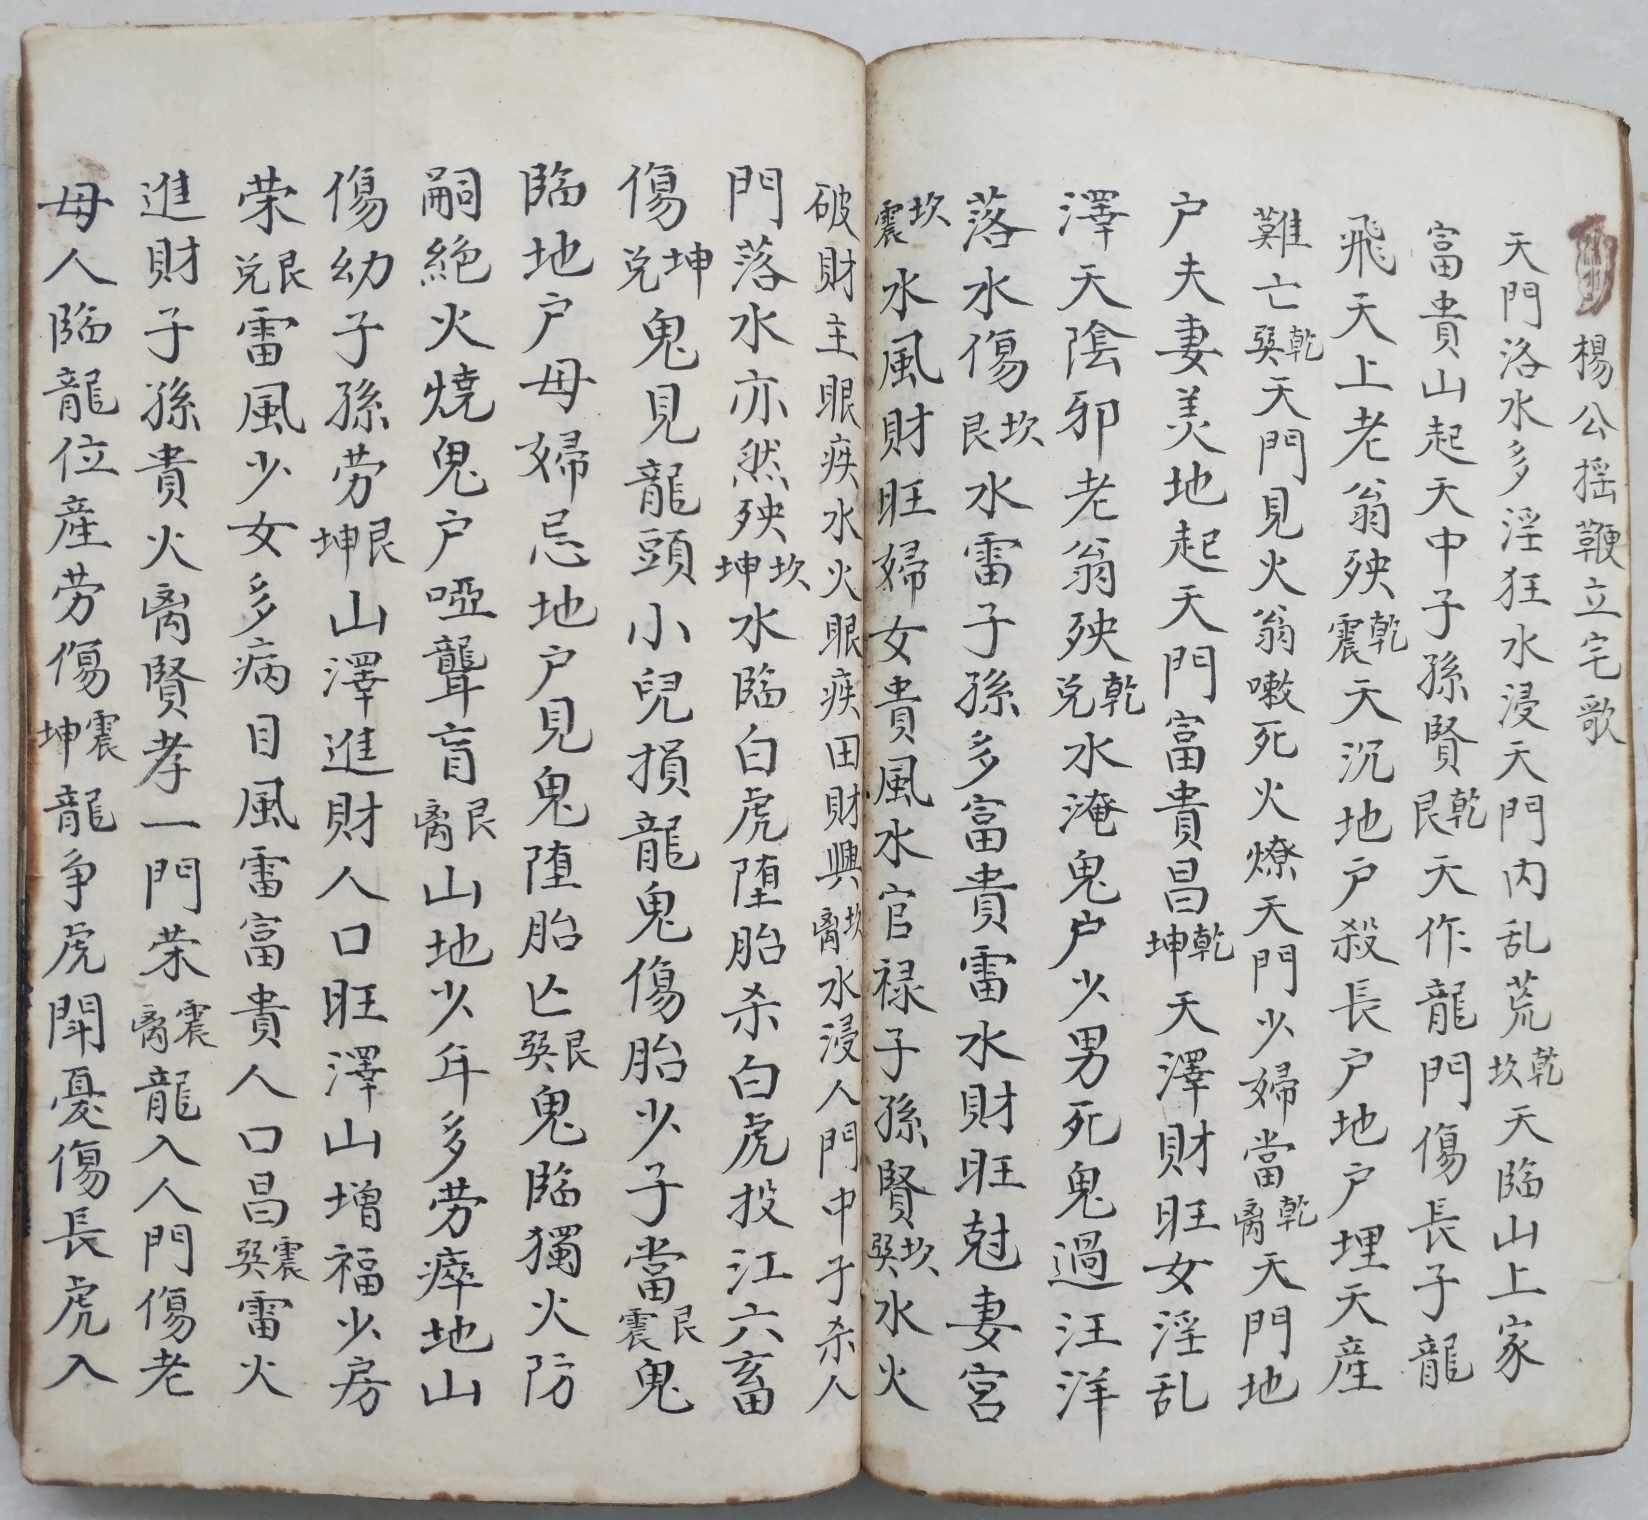 楊公摇鞭立宅歌
天門洛水多淫狂水浸天門内乱荒乾坎天臨山上家
富貴山起天中子孫賢乾艮天作龍門傷長子龍
飛天上老翁殃乾震天沉地户殺長户地户埋天產
難亡乾巽天門見火翁嗽死火燎天門少婦當乾离天門地
户夫妻美地起天門富貴昌乾坤天澤財旺女淫乱
澤天陰邪老翁殃乾兑水淹鬼户少男死鬼過汪洋
落水傷坎艮水雷子孫多富貴雷水財旺尅妻宮
坎震水風財旺婦女貴風水官禄子孫賢坎巽水火
破財主眼疾水火眼疾田財興坎离水浸人門中子杀人
門落水亦然殃坎坤水臨白虎堕胎杀白虎投江六畜
傷坤兑鬼見龍頭小兒損龍鬼傷胎少子當艮震鬼
臨地户母婦忌地户見鬼堕胎亡艮巽鬼臨獨火防
嗣絶火燒鬼户啞聾盲艮离山地少年多劳瘁地山
傷幼子孫劳艮坤山澤進財人口旺澤山增福少房
荣艮兑雷風少女多病目風雷富貴人口昌震巽雷火
進財子孫貴火离賢孝一門荣震离龍入人門傷老
母人臨龍位產劳傷震坤龍争虎鬥憂傷長虎入